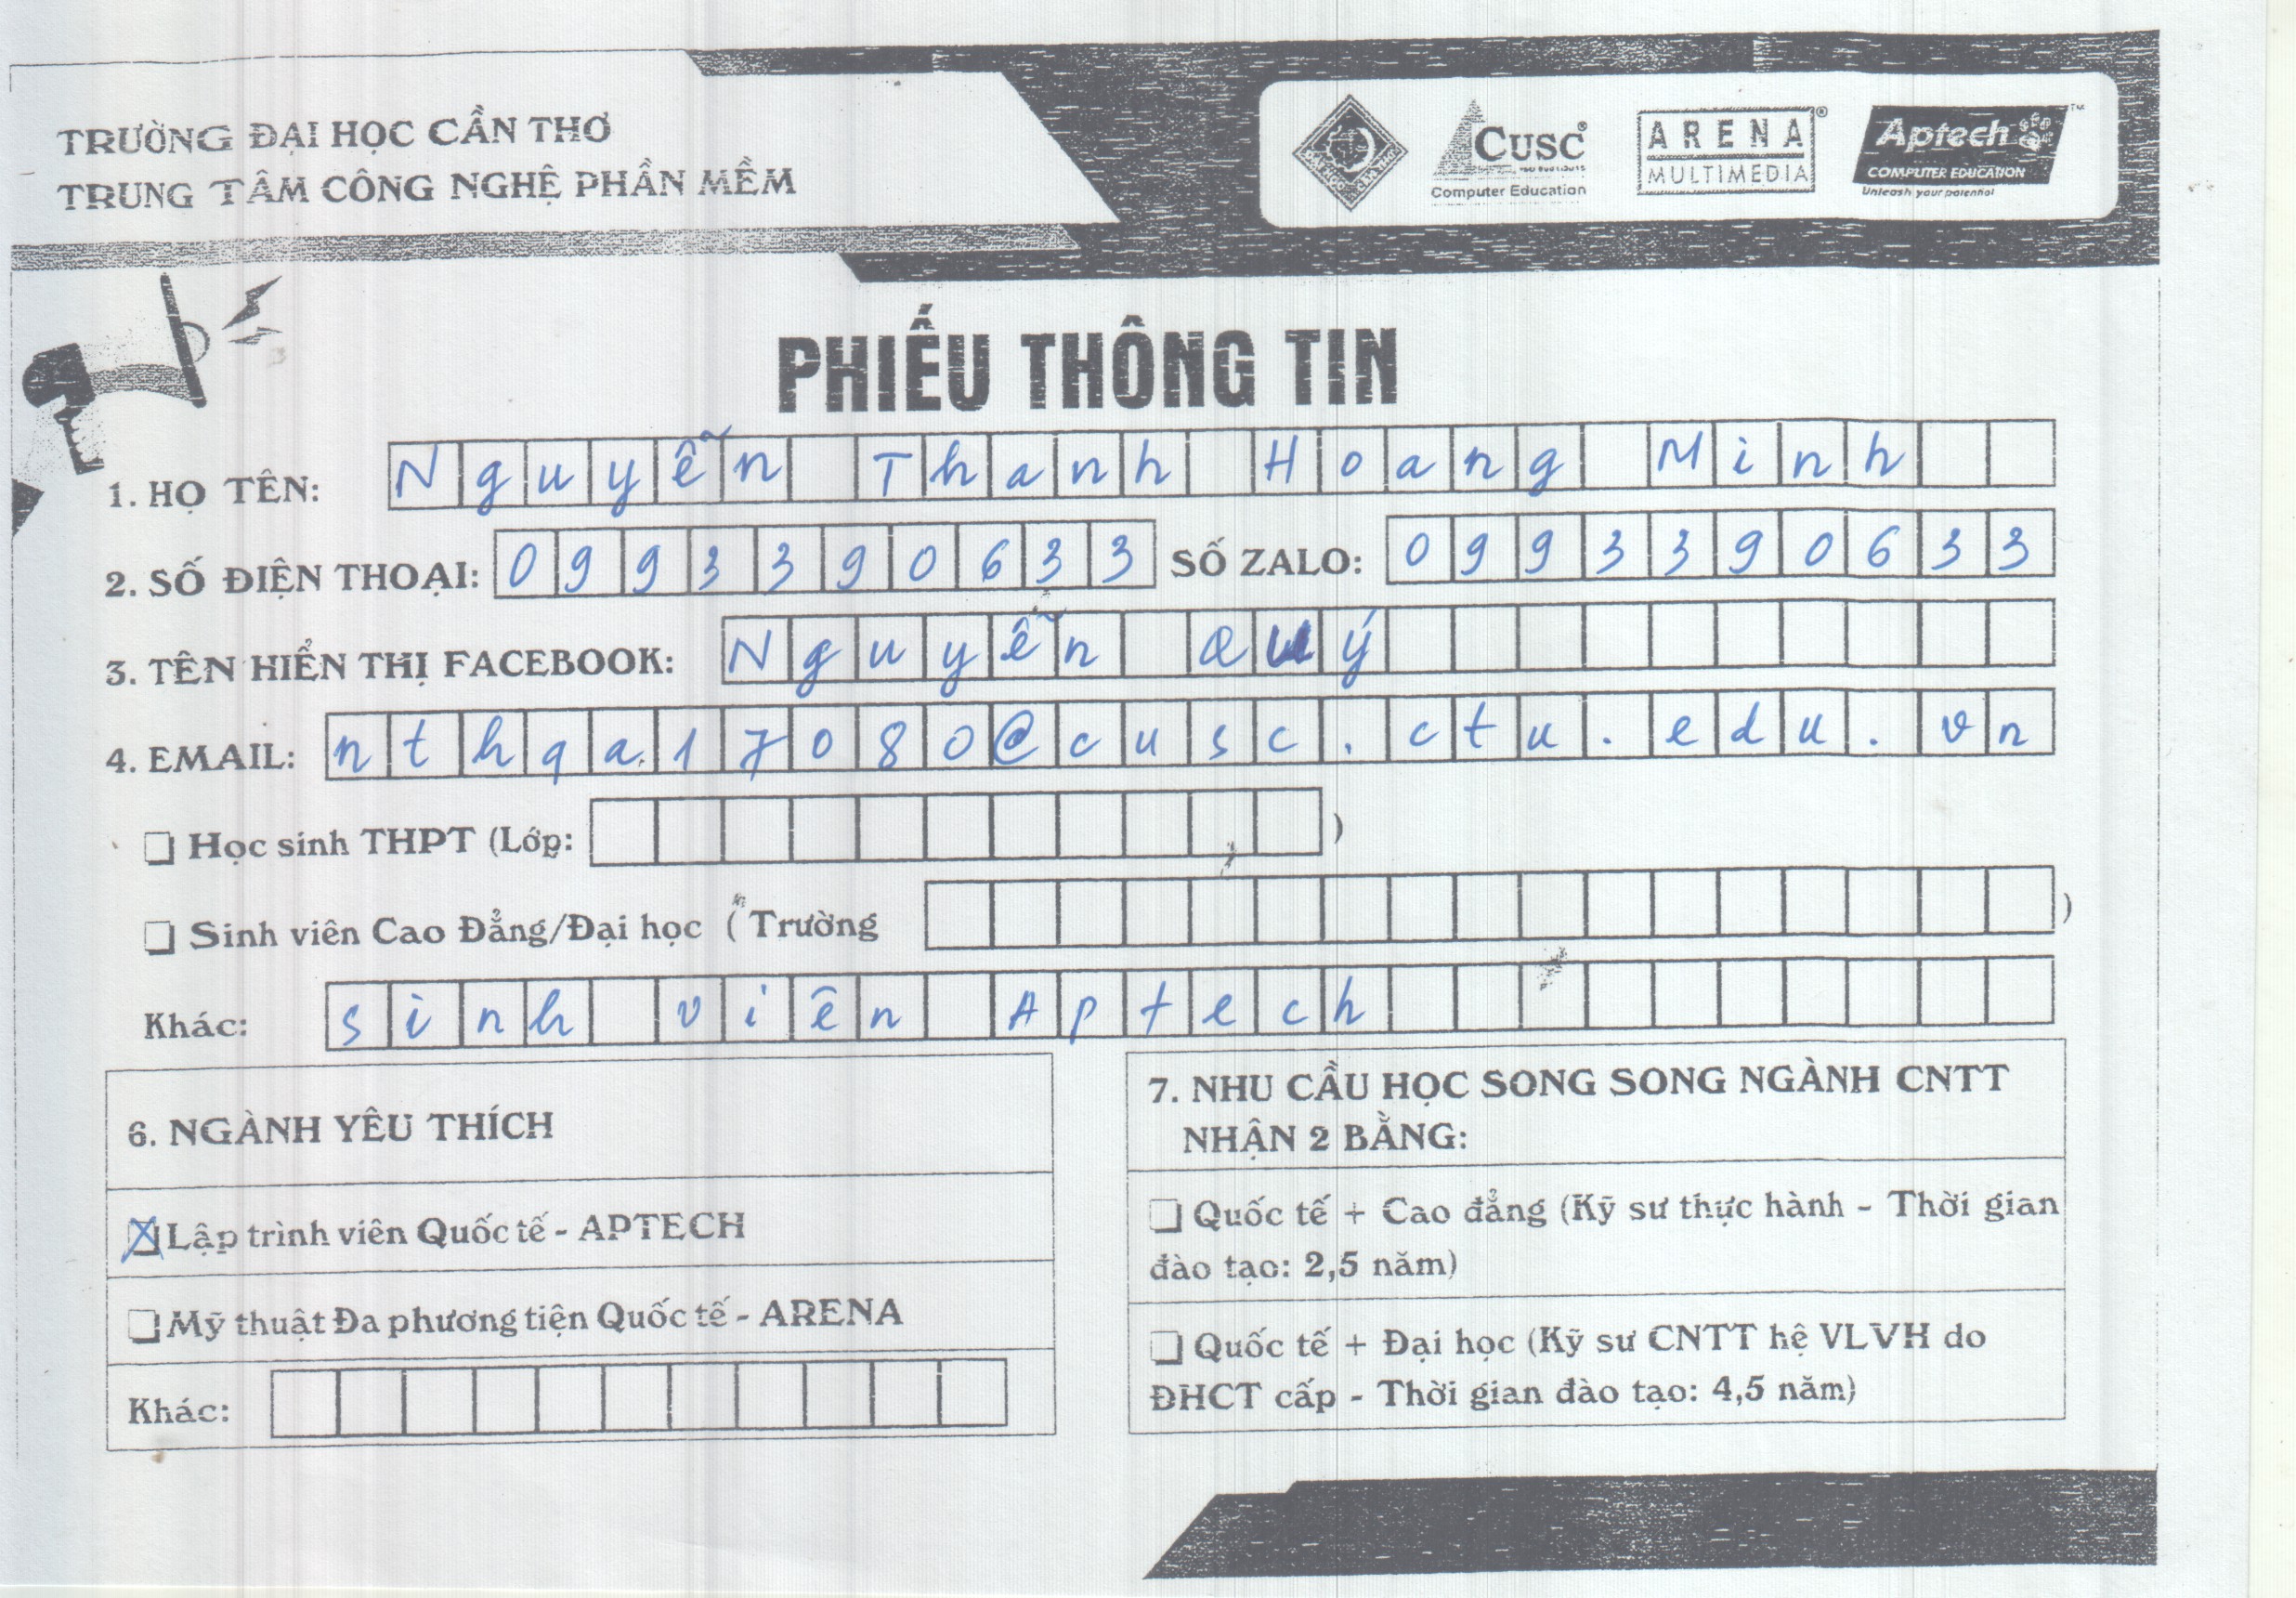 TRƯỜNG ĐẠI HỌC CẦN THƠ
TRUNG TÂM CÔNG NGHỆ PHẦN MỀM
CUSC®
Computer Education
ARENA®
MULTIMEDIA
Aptech™
COMPUTER EDUCATION
Unleash your potential
PHIẾU THÔNG TIN
1. HỌ TÊN: Nguyễn Thanh Hoang Minh
2. SỐ ĐIỆN THOẠI: 0993390633 SỐ ZALO: 0993390633
3. TÊN HIỂN THỊ FACEBOOK: Nguyễn Quý
4. EMAIL: nthqa.17080@cusc.ctu.edu.vn
Học sinh THPT (Lớp: )
Sinh viên Cao Đẳng/Đại học ( Trường )
Khác: sinh viên Aptech
6. NGÀNH YÊU THÍCH
Lập trình viên Quốc tế - APTECH
Mỹ thuật Đa phương tiện Quốc tế - ARENA
Khác:
7. NHU CẦU HỌC SONG SONG NGÀNH CNTT
NHẬN 2 BẰNG:
Quốc tế + Cao đẳng (Kỹ sư thực hành - Thời gian
đào tạo: 2,5 năm)
Quốc tế + Đại học (Kỹ sư CNTT hệ VLVH do
ĐHCT cấp - Thời gian đào tạo: 4,5 năm)